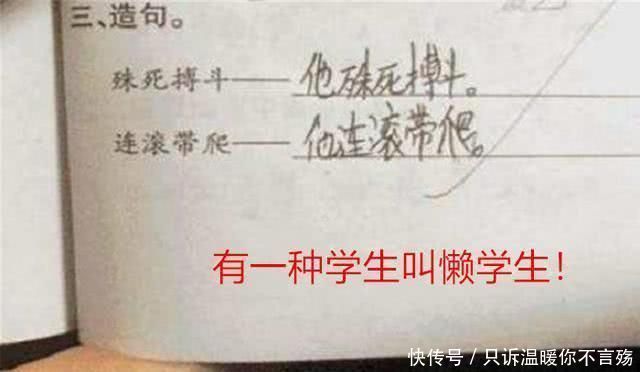 三、造句。
殊死搏斗——他殊死搏斗。
连滚带爬——他连滚带爬。
有一种学生叫懒学生！
快传号／只诉温暖你不言殇